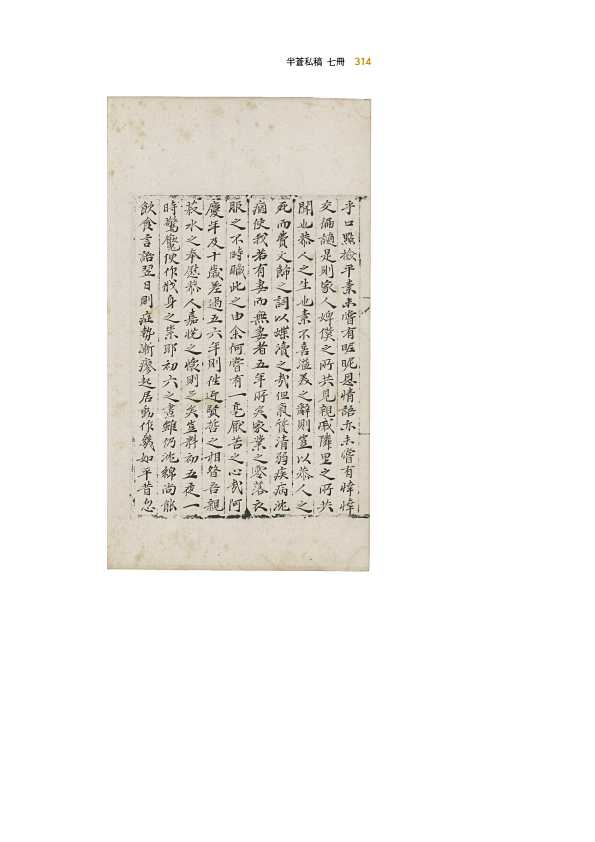 半蒼私稿 七冊 314
乎口點檢平素未嘗有昵昵恩情語亦未嘗有悻悻
交徧謫是則家人婢僕之所共見親戚隣里之所共
聞也恭人之生也素不喜溢美之辭則豈以恭人之
死而費文飾之詞以蝶瀆之哉但稟質清弱疾病沈
痼使我若有妻而無妻者五年所矣家業之零落衣
服之不時職此之由余何嘗有一毫厭苦之心哉阿
慶年及十歲差過五六年則往近賢哲之相夸吾親
菽水之奉慰恭人嘉悅之懷則足矣豈料初五夜一
時驚魘便作戕身之祟耶初六之晝雖仍沈綿尚能
飮食言語翌日則症勢漸瘳起居動作幾如平昔忽